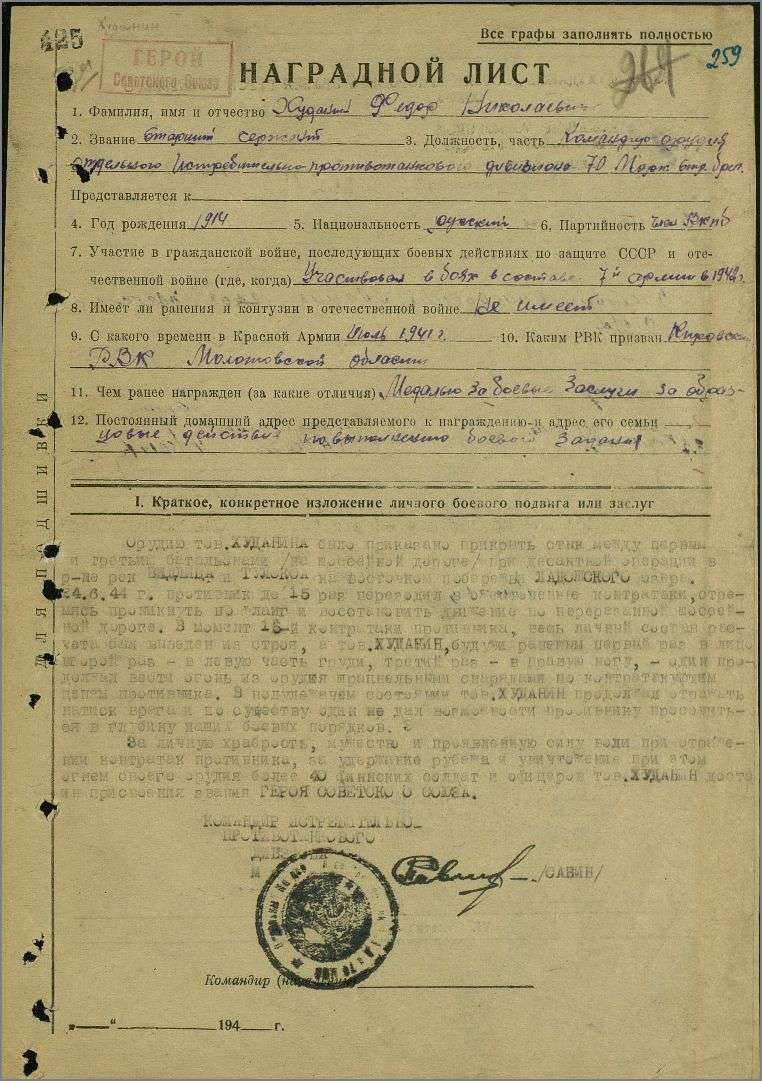 425
Худанин
ГЕРОЙ
Советского Союза
Все графы заполнять полностью
264 259
НАГРАДНОЙ ЛИСТ
1. Фамилия, имя и отчество Худанин Федор Николаевич
2. Звание старший сержант 3. Должность, часть Командир орудия
отдельного истребительно-противотанкового дивизиона 70 Морск. стр. бриг.
Представляется к
4. Год рождения 1914 5. Национальность русский 6. Партийность член ВКПб
7. Участие в гражданской войне, последующих боевых действиях по защите СССР и оте-
чественной войне (где, когда) Участвовал в боях в составе 7й армии в 1942г.
8. Имеет ли ранения и контузии в отечественной войне Не имеет
9. С какого времени в Красной Армии Июль 1941 г. 10. Каким РВК призван Кировск
РВК Молотовской области
11. Чем ранее награжден (за какие отличия) Медалью За боевые Заслуги за образ-
12. Постоянный домашний адрес представляемого к награждению и адрес его семьи
цовые действия по выполнению боевого Задания
ДЛЯ ПОДШИВКИ
I. Краткое, конкретное изложение личного боевого подвига или заслуг
Орудию тов. ХУДАНИНА было приказано прикрыть стык между первым
и третьим батальонами /на шоссейной дороге/ при десантной операции в
р-не рек ВИДЛИЦА и ТУЛОКСА на восточном побережье ЛАДОЖСКОГО озера.
24.6.44 г. противник до 15 раз переходил в ожесточенные контратаки, стре-
мясь проникнуть во фланг и восстановить движение по перерезанной шоссей-
ной дороге. В момент 16-й контратаки противника, весь личный состав рас-
чета был выведен из строя, а тов. ХУДАНИН, будучи раненым первый раз в
второй раз - в левую часть груди, третий раз - в правую ногу, - один про-
должал вести огонь из орудия шрапнельными снарядами по контратакующим
цепям противника. В полулежачем состоянии тов. ХУДАНИН продолжал отражать
натиск врага и по существу один не дал возможности противнику просочить-
ся в глубину наших боевых порядков.
За личную храбрость, мужество и проявленную силу воли при отраже-
нии контратак противника, за удержание рубежа и уничтожении при этом
огнем своего орудия более 40 финских солдат и офицеров тов. ХУДАНИН досто
ин присвоения звания ГЕРОЯ СОВЕТСКО О СОЮЗА.
КОМАНДИР ИСТРЕБИТЕЛЬНО
ПРОТИВОТАНКОВОГО
ДИВИЗИОНА
М /САВИН/
Командир (начальник)
„ “ 194 г.